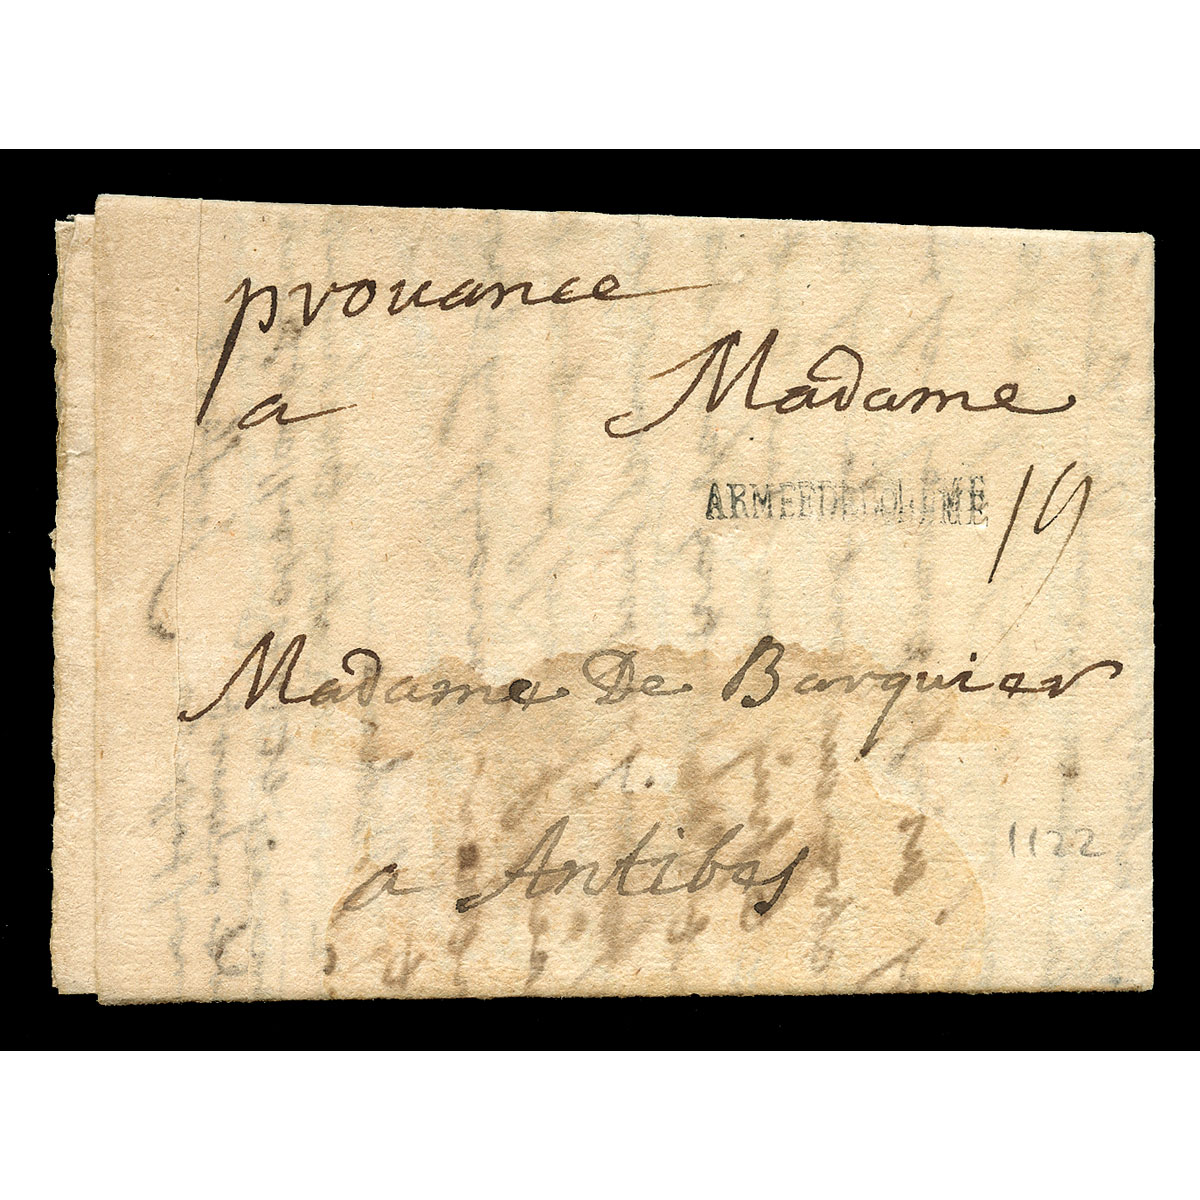 provance
a Madame
ARMEEDEBOHEME 19
Madame De Barquier
a Antibes
1122